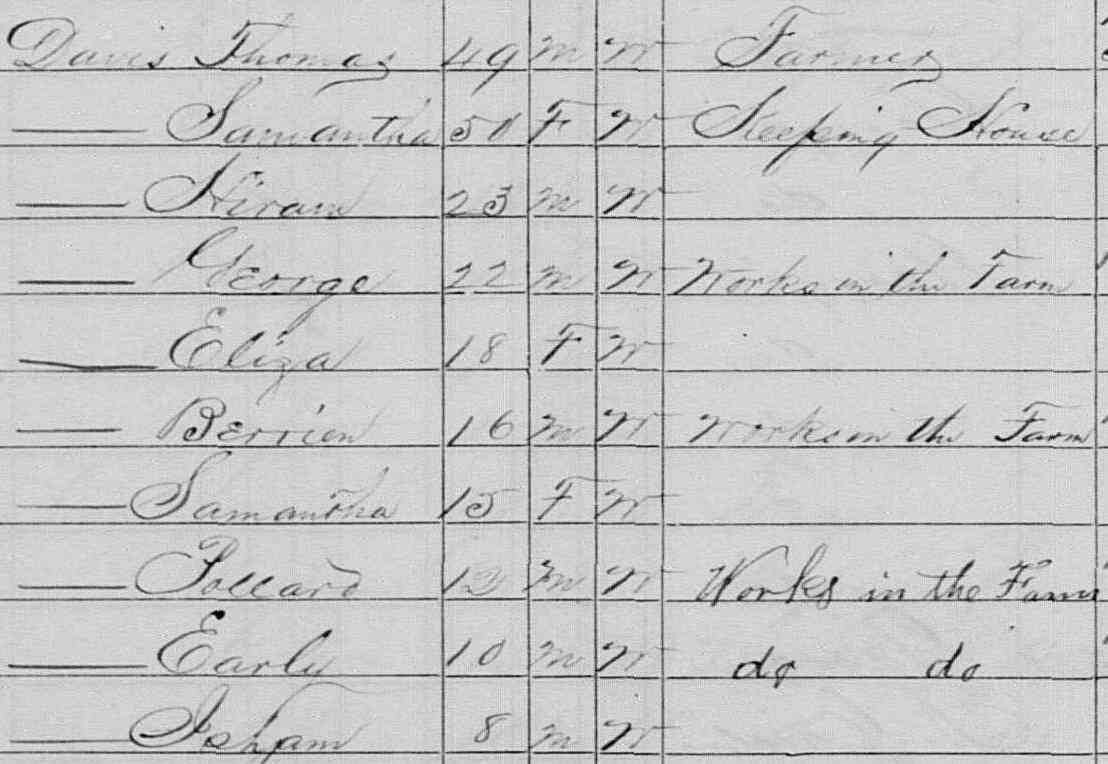 Davis Thomas 49 M W Farmer
—— Samantha 50 F W Keeping House
—— Hiram 23 M W
—— George 22 M W Works in the Farm
—— Eliza 18 F W
—— Berrien 16 M W Works in the Farm
—— Samantha 15 F W
—— Pollard 12 M W Works in the Farm
—— Early 10 M W do do
—— Isham 8 M W